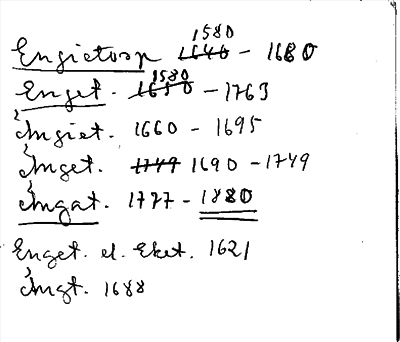 Engietorp 1580 1640 - 1680
Enget. 1580 1650 - 1763
Ängiet. 1660 - 1695
Änget. 1749 1690 - 1749
Ängat. 1777 - 1880
Enget. el. Eket. 1621
Ängt. 1688